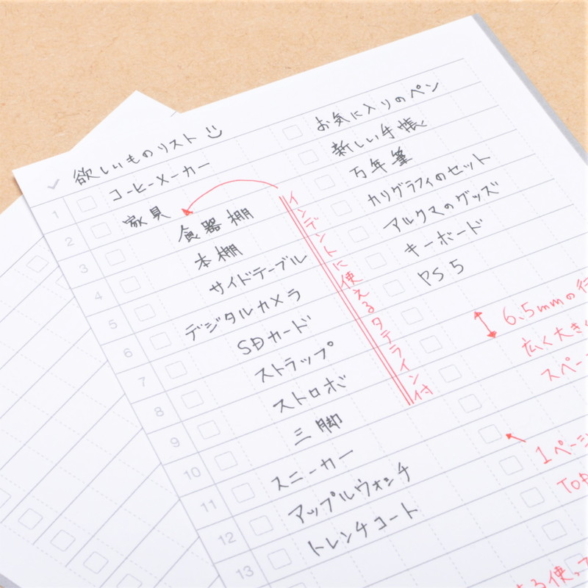 欲しいものリスト
コーヒーメーカー
家具
食器棚
本棚
サイドテーブル
デジタルカメラ
SDカード
ストラップ
ストロボ
三脚
スニーカー
アップルウォッチ
トレンチコート
お気に入りのペン
新しい手帳
万年筆
カリグラフィのセット
アルクマのグッズ
キーボード
PS5
インデントに使えるタテライン付
6.5mmの行
広く大き
スペー
1ページ
Top
る使い
1
2
3
4
5
6
7
8
9
10
11
12
13